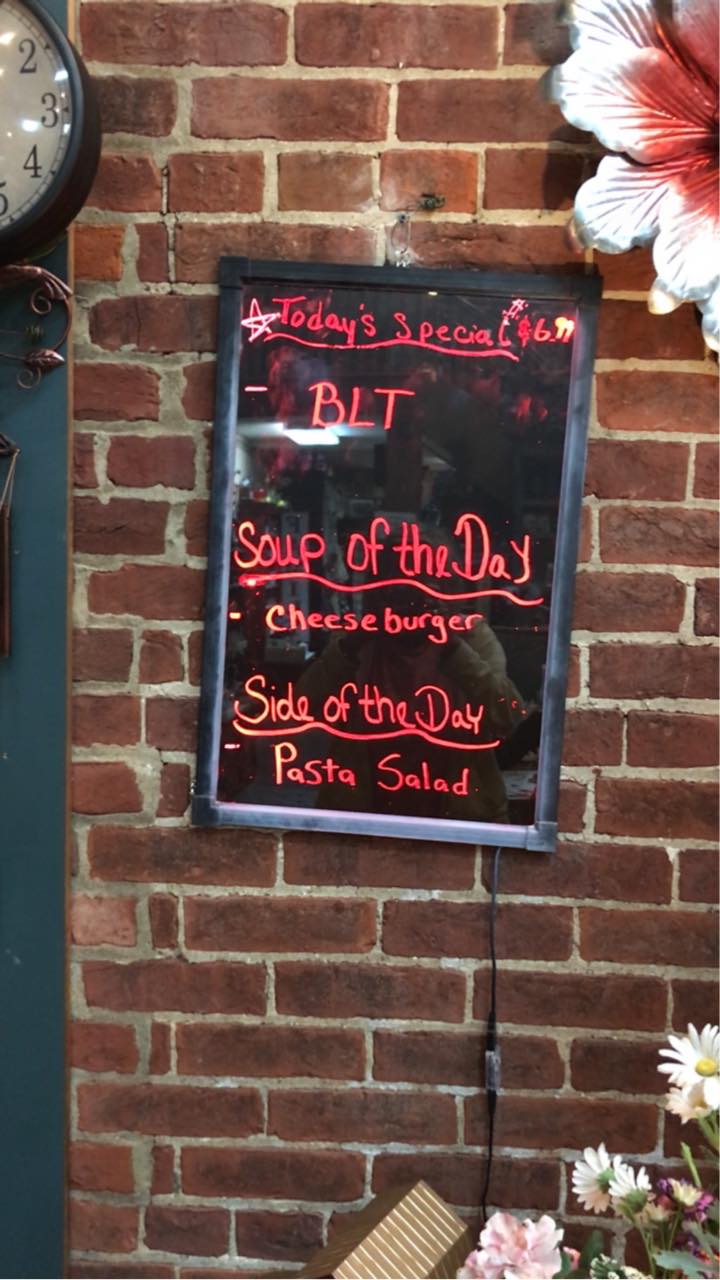 2
3
4
5
Today's Special $6.99
- BLT
Soup of the Day
- Cheeseburger
Side of the Day
- Pasta Salad